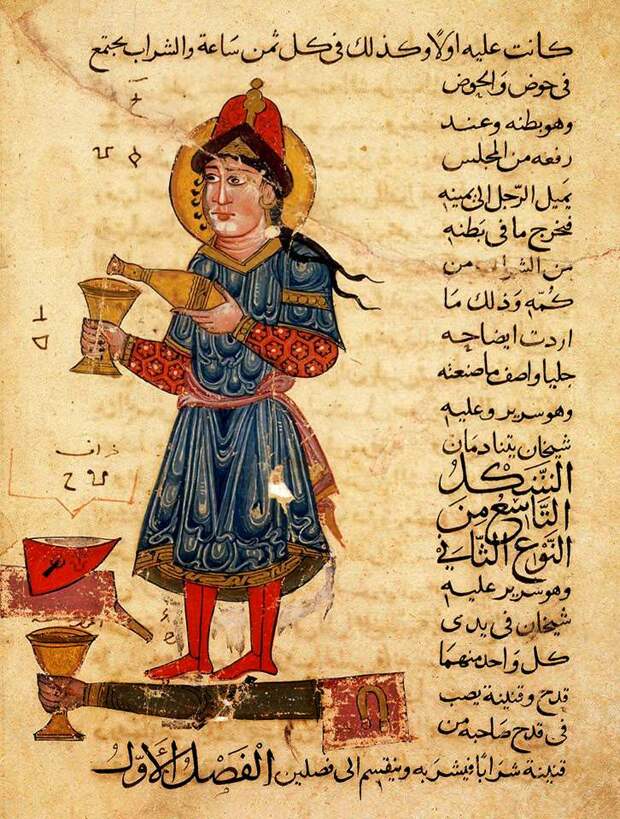 كانت عليه اولًا وكذلك في كل ثمن ساعة والشراب يجتمع
في حوض والحوض
وهو بطنه وعند
رفعه من المجلس
يميل الرجل الى يمينه
فيخرج ما في بطنه
من الشراب من
كمّه وذلك ما
اردت ايضاحه
جليا واصف ما صنعته
وهو سرير وعليه
شيخان يتنادمان
الشكل
التاسع من
النوع الثاني
وهو سرير عليه
شيخان في يدي
كل واحد منهما
قدح وقنينة يصب
في قدح صاحبه من
قنينة شرابًا فيشربه وينقسم الى فصلين الفصل الأول